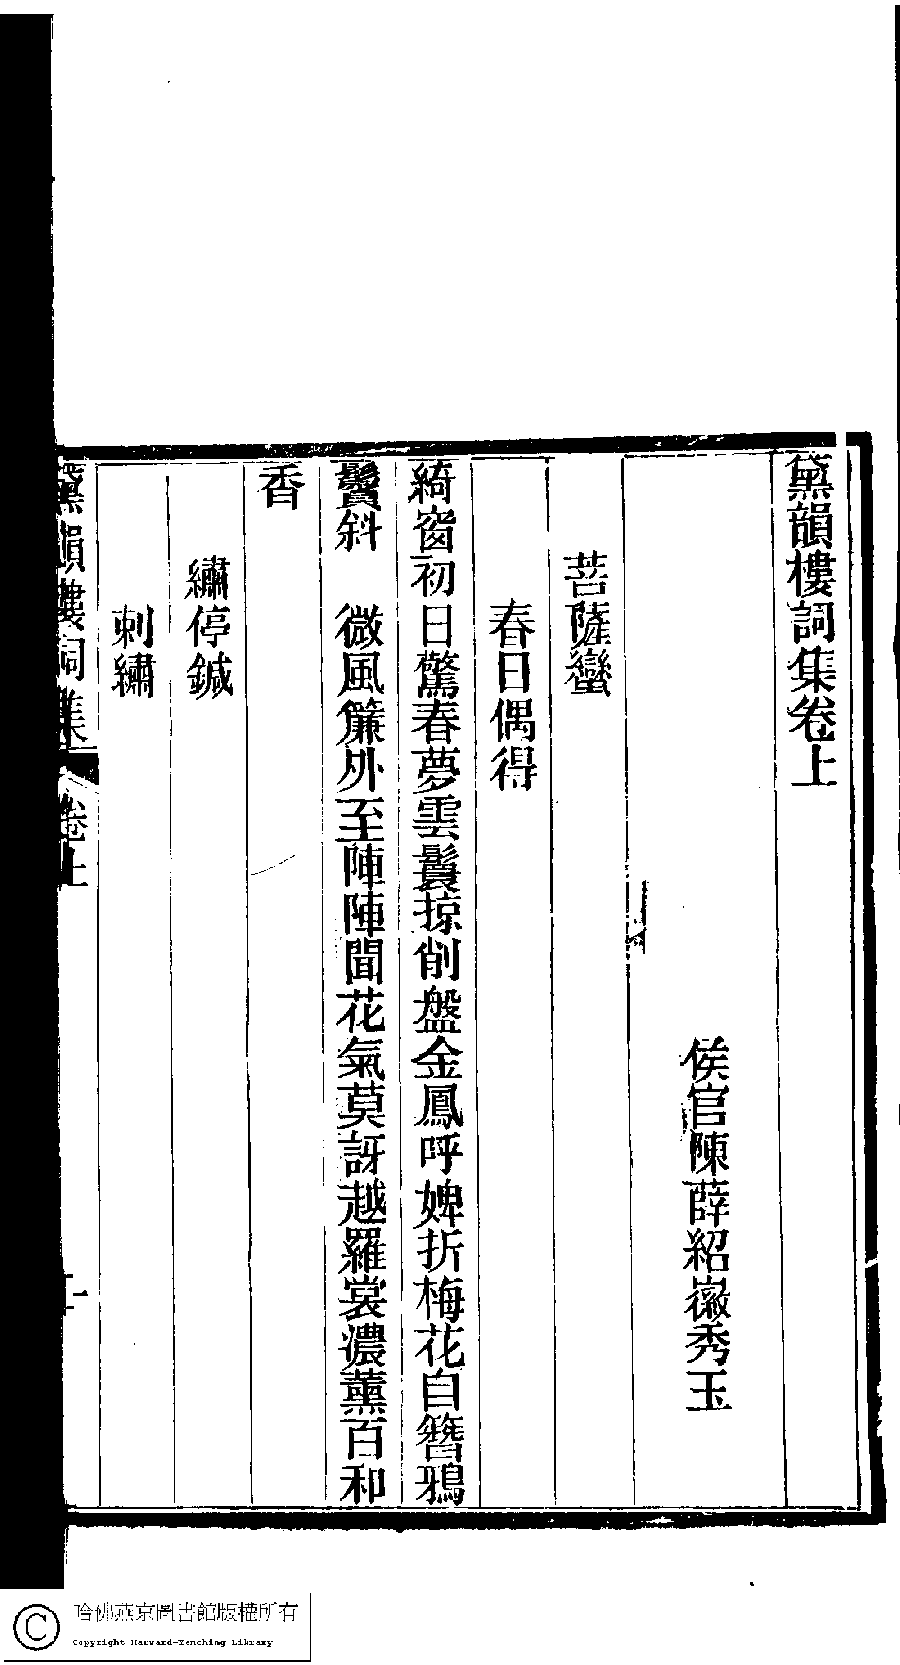 黛韻樓詞集卷上
侯官陳薛紹徽秀玉
菩薩蠻
春日偶得
綺窗初日驚春夢雲鬟掠削盤金鳳呼婢折梅花自簪鴉
鬢斜　微風簾外至陣陣聞花氣莫訝越羅裳濃薰百和
香
繡停鍼
刺繡
黛韻樓詞集　卷上
哈佛燕京圖書館版權所有
Copyright Harvard-Yenching Library